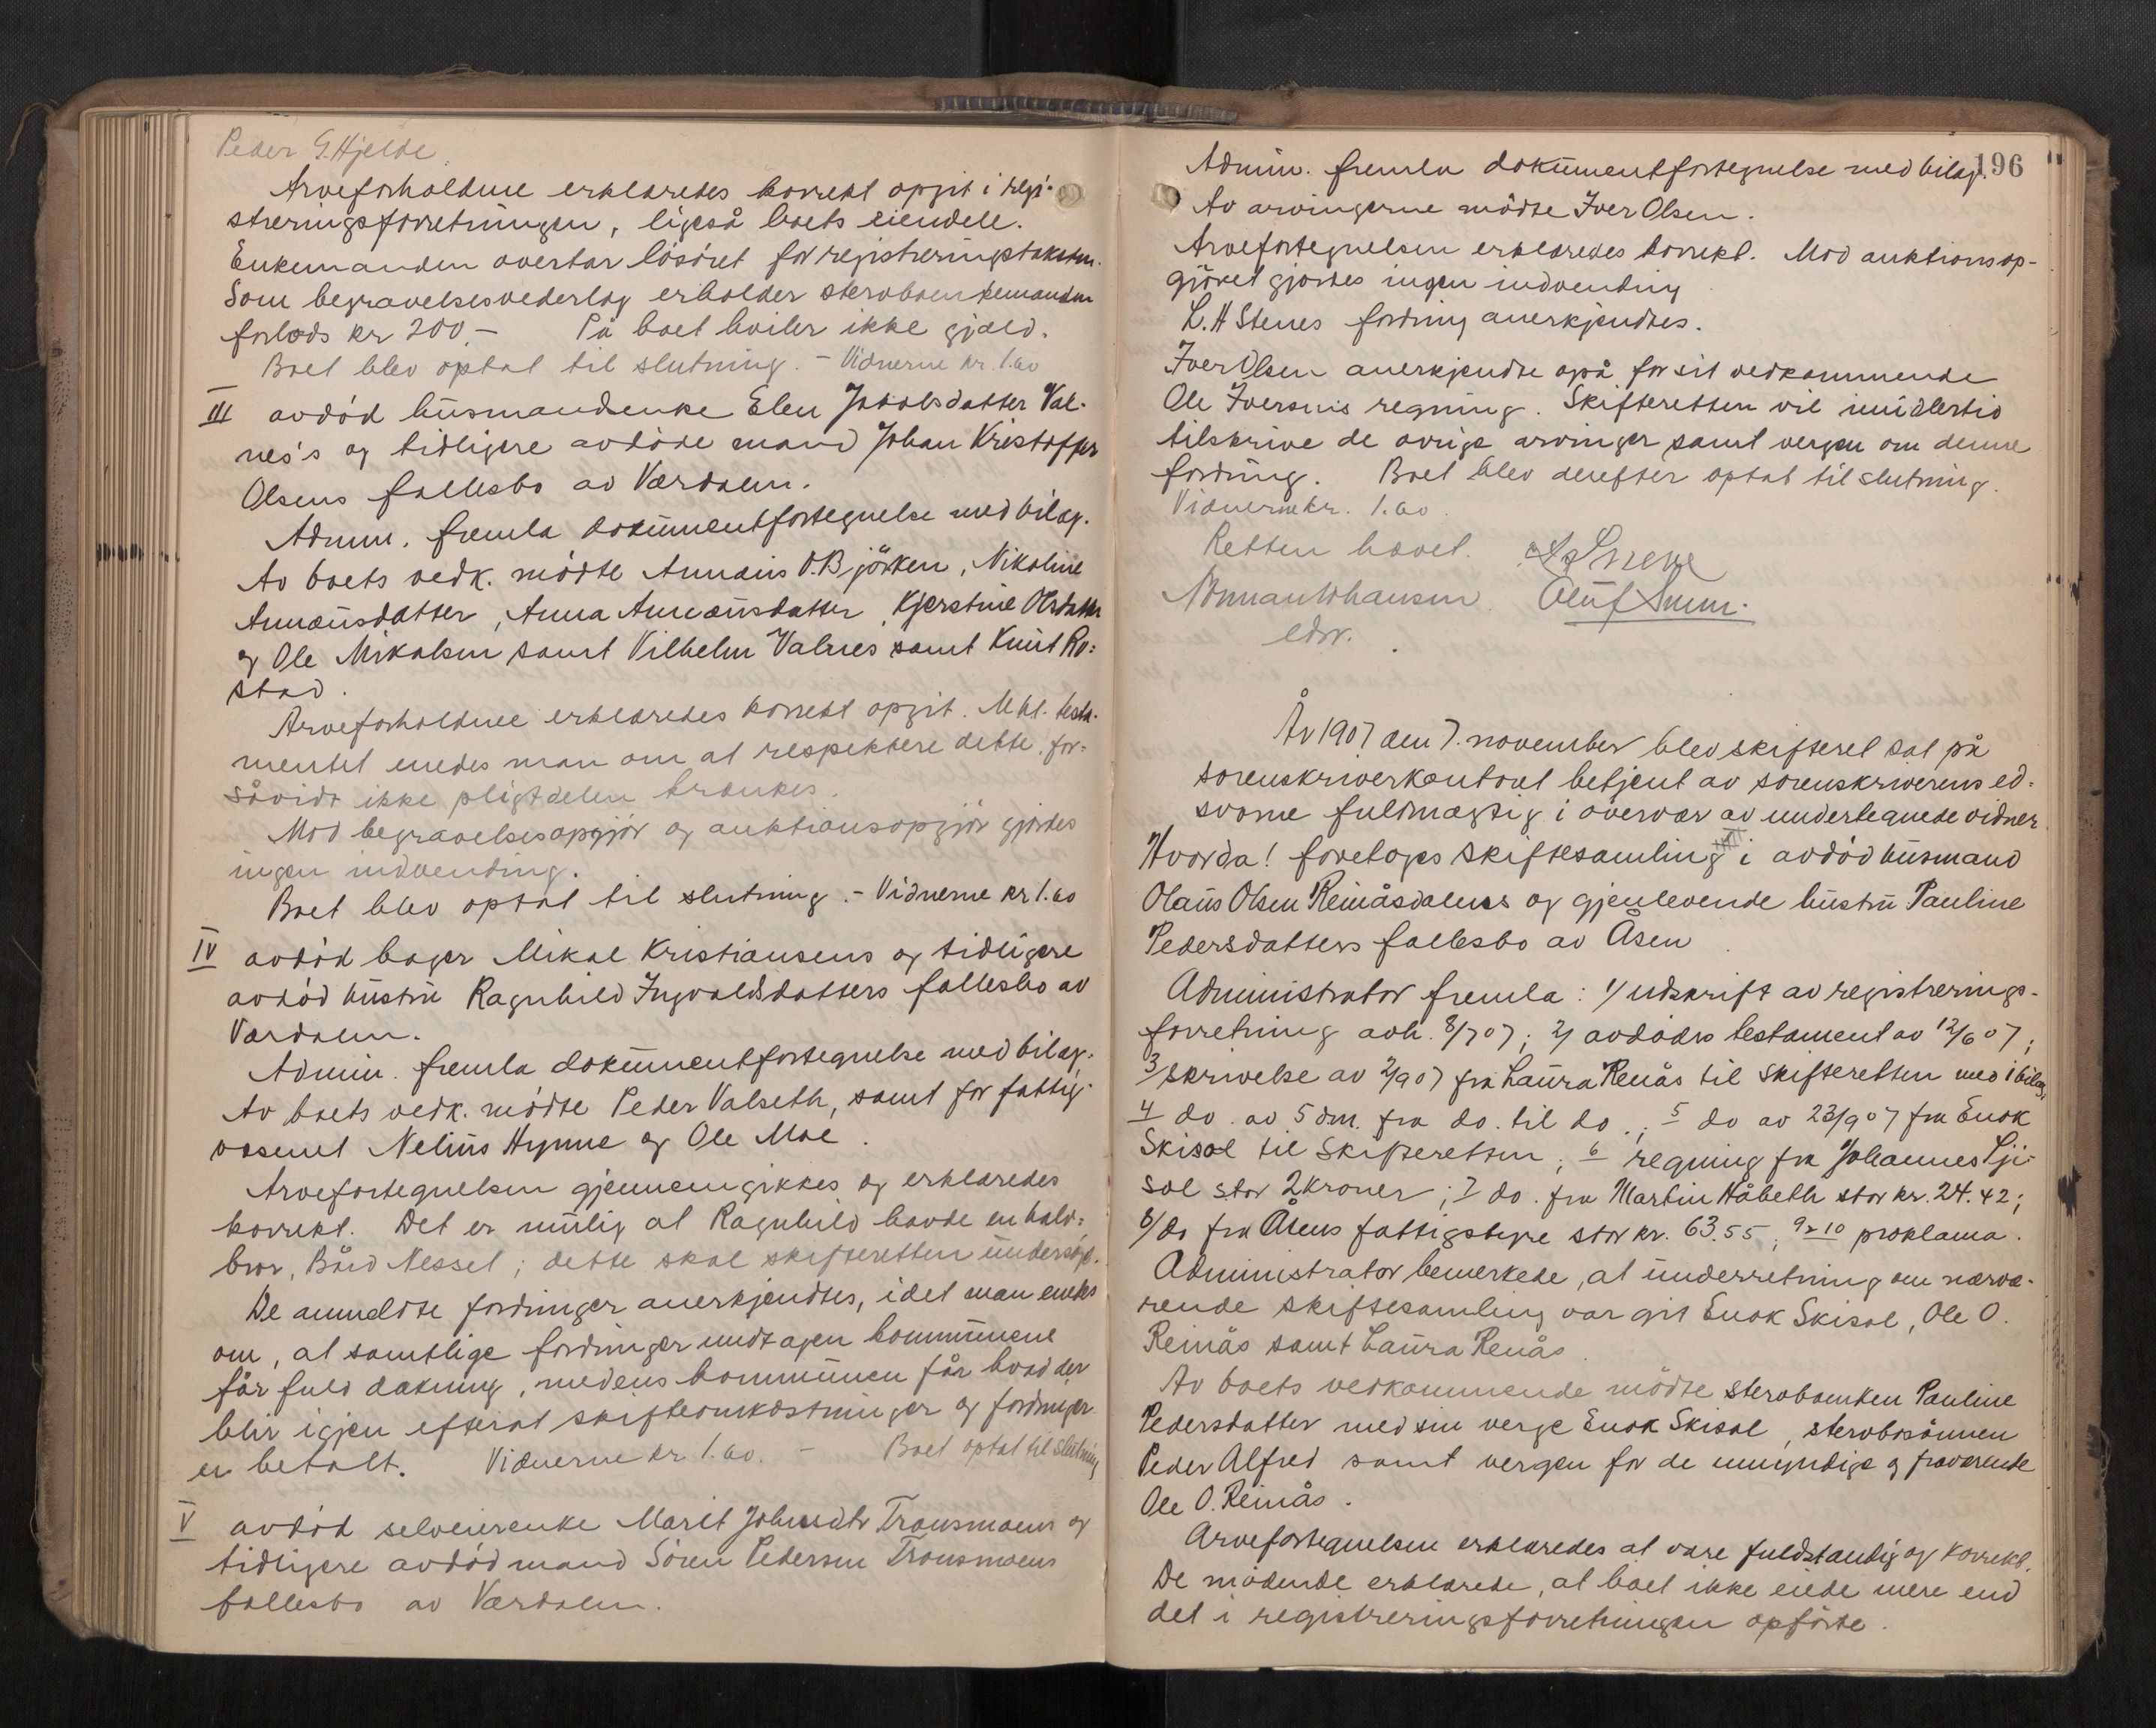 Peder G. Hjelde
Arveforholdene erklæredes korrekt opgit i regi-
streringsforretningen, ligeså boets eiendele.
Enkemanden overtar lösöret for registreringstaksten.
Som begravelsesvederlag erholder stervboenkemanden
forlods kr 200,- På boet hviler ikke gjæld.
Boet blev optat til slutning. - Vidnerne kr. 1.60
III avdöd husmandsenke Elen Jakobsdatter Val-
nes's og tidligere avdöde mand Johan Kristoffer
Olsens fællesbo av Værdalen.
Admin. fremla dokumentfortegnelse med bilag.
Av boets vedk. mödte Annæus O. Björken, Nikoline
Annæusdatter, Anna Annæusdatter, Kjerstine Olsdatter
og Ole Mikalsen samt Vilhelm Valnes samt Knut Ro=
stad.
Arveforholdene erklæredes korrekt opgit. Mht. testa-
mentet enedes man om at respektere dette, for=
såvidt ikke pligtdelen krænkes.
Mod begravelsesopgjör og auktionsopgjör gjordes
ingen indvending.
Boet blev optat til slutning. - Vidnerne kr 1.60
IV avdöd bager Mikal Kristiansens og tidligere
avdöd hustru Ragnhild Ingvaldsdatters fællesbo av
Værdalen.
Admin. fremla dokumentfortegnelse med bilag.
Av boets vedk. mödte Peder Valseth, samt for fattig-
væsenet Nelius Hynne og Ole Moe.
Arvefortegnelsen gjennemgikkes og erklæredes
korrekt. Det er mulig at Ragnhild havde en halv=
bror, Bård Nessel; dette skal skifteretten undersöge.
De anmeldte fordringer anerkjendtes, idet man enedes
om, at samtlige fordringer undtagen kommunens
får fuld dækning, medens kommunen får hvad der
blir igjen efterat skifteomkostninger og fordringer
er betalt. Vidnerne kr 1.60. - Boet optat til slutning
V avdöd selveierenke Marit Johnsdtr Transmoens og
tidligere avdöd mand Sören Pedersen Transmoens
fællesbo av Værdalen.
196
Admin. fremla dokumentfortegnelse med bilag.
Av arvingerne mödte Iver Olsen.
Arvefortegnelsen erklæredes korrekt. Mod auktionsop-
gjöret gjordes ingen indvending
L. H Stenes fordring anerkjendtes.
Iver Olsen anerkjendte også for sit vedkommende
Ole Iversens regning. Skifteretten vil imidlertid
tilskrive de övrige arvinger samt vergen om denne
fordring. Boet blev derefter optat til slutning.
Vidnerne kr. 1.60.
Retten hævet.
edsv.
År 1907 den 7. november blev skifteret sat på
sorenskriverkontoret betjent av sorenskriverens ed=
svorne fuldmægtig i overvær av undertegnede vidner
Hvorda! foretages skiftesamling i avdöd husmand
Olaus Olsen Reinåsdalens og gjenlevende hustru Pauline
Pedersdatters fællesbo av Åsen
Administrator fremla: 1/ utskrift av registrerings-
forretning avh. 8/7 07; 2/ avdödes testament av 12/6 07;
3/ skrivelse av 2/9 07 fra Laura Renås til skifteretten med 1 bilag,
4 do. av 5 dm. fra do. til do.; 5 do av 23/9 07 fra Enok
Skisol til Skifteretten; 6 regning fra Johannes
stor 2 kroner; 7 do. fra Martin Håbeth stor kr. 24.42;
8/ do fra Åsens fattigstyre stor kr. 63.55; 9 & 10 proklama.
Administrator bemerkede, at underretning om nærvæ-
rende skiftesamling var git Enok Skisol, Ole O.
Reinås samt Laura Renås.
Av boets vedkommende mödte stervboenken Pauline
Pedersdatter med sin verge Enok Skisol, stervbosönnen
Peder Alfred samt vergen for de umyndige og fraværende
Ole O. Reinås.
Arvefortegnelsen erklæredes at være fuldstændig og korrekt.
De mödende erklærede, at boet ikke eiede mere end
det i registreringsforretningen opförte.